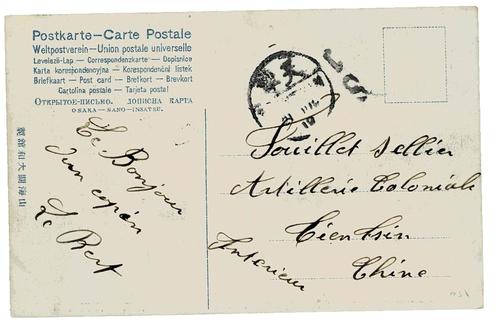 Postkarte — Carte Postale
Weltpostverein — Union postale universelle
Levelezö-Lap — Correspondenzkarte — Dopisnice
Karta korespondencyjna — Korespondenční listek
Briefkaart — Post card — Brefkort — Brevkort
Cartolina postale — Tarjeta postal
Открытое-письмо. Дописна карта
OSAKA—SANO—INSATSU.
Le Bonjour
d'un copain
Le Bert
Fouillet sellier
Artillerie Coloniale
Tientsin
Interieur
Chine